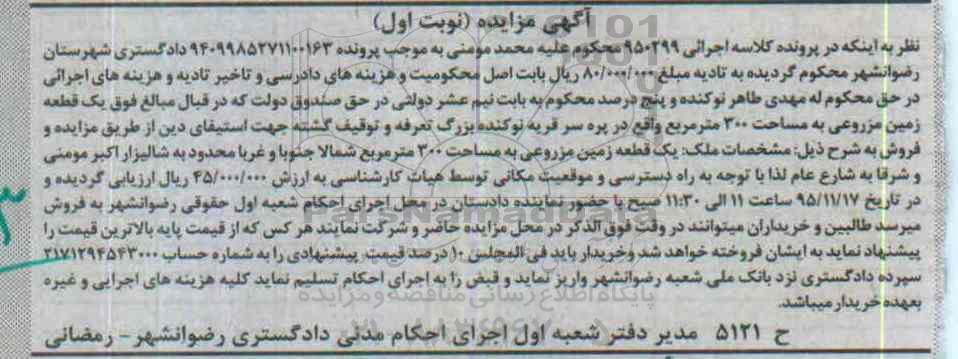 آگهی مزایده (نوبت اول)
نظر به اینکه در پرونده کلاسه اجرائی ۹۵۰۲۹۹ محکوم علیه محمد مومنی به موجب پرونده ۹۴۰۹۹۸۵۲۷۱۱۰۰۱۶۳ دادگستری شهرستان
رضوانشهر محکوم گردیده به تادیه مبلغ ۸۰/۰۰۰/۰۰۰ ریال بابت اصل محکومیت و هزینه های دادرسی و تاخیر تادیه و هزینه های اجرائی
در حق محکوم له مهدی طاهر نوکنده و پنج درصد محکوم به بابت نیم عشر دولتی در حق صندوق دولت که در قبال مبالغ فوق یک قطعه
زمین مزروعی به مساحت ۳۰۰ مترمربع واقع در پره سر قریه نوکنده بزرگ تعرفه و توقیف گشته جهت استیفای دین از طریق مزایده و
فروش به شرح ذیل: مشخصات ملک: یک قطعه زمین مزروعی به مساحت ۳۰۰ مترمربع شمالا جنوبا و غربا محدود به شالیزار اکبر مومنی
و شرقا به شارع عام لذا با توجه به راه دسترسی و موقعیت مکانی توسط هیات کارشناسی به ارزش ۴۵/۰۰۰/۰۰۰ ریال ارزیابی گردیده و
در تاریخ ۹۵/۱۱/۱۷ ساعت ۱۱ الی ۱۱:۳۰ صبح با حضور نماینده دادستان در محل اجرای احکام شعبه اول حقوقی رضوانشهر به فروش
میرسد طالبین و خریداران میتوانند در وقت فوق الذکر در محل مزایده حاضر و شرکت نمایند هر کس که از قیمت پایه بالاترین قیمت را
پیشنهاد نماید به ایشان فروخته خواهد شد وخریدار باید فی المجلس ۱۰ درصد قیمت پیشنهادی را به شماره حساب ۲۱۷۱۲۹۴۵۴۳۰۰۰
سپرده دادگستری نزد بانک ملی شعبه رضوانشهر واریز نماید و قبض را به اجرای احکام تسلیم نماید کلیه هزینه های اجرایی و غیره
بعهده خریدار میباشد.
ح ۵۱۲۱ مدیر دفتر شعبه اول اجرای احکام مدنی دادگستری رضوانشهر - رمضانی
ParsNamadData
پایگاه اطلاع رسانی مناقصه و مزایده